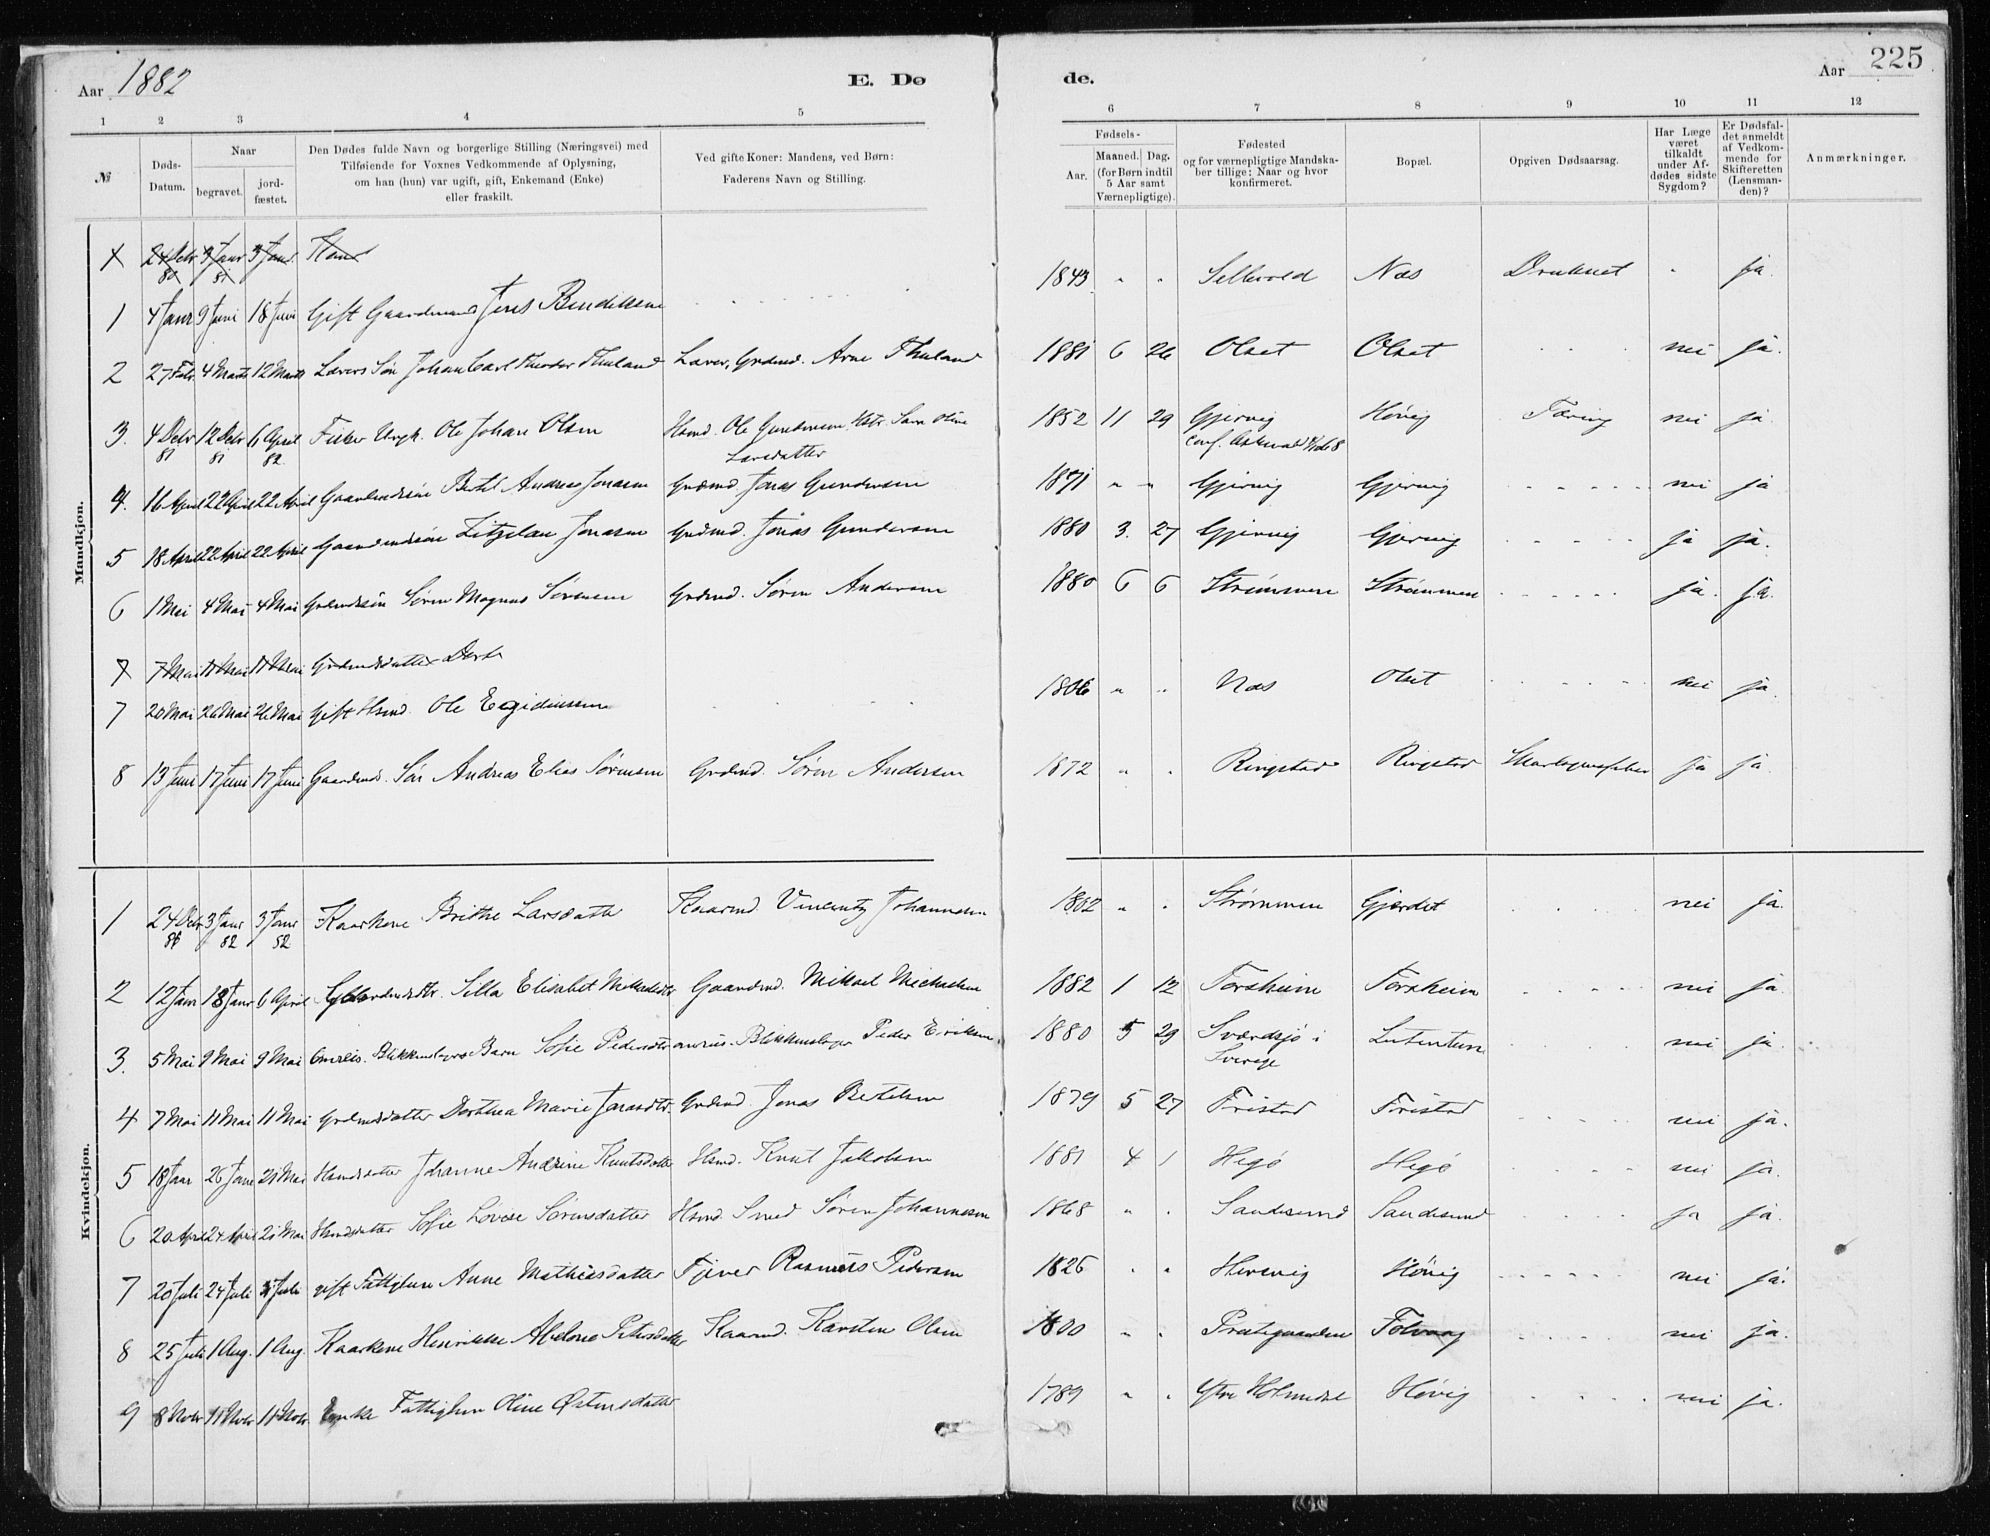 Aar 1882 E. Dø
de. Aar 225
1 2 3 4 5
6 7 8 9 10 11 12
№
Døds-Datum.
Naar
begravet.
jord-fæstet.
Den Dødes fulde Navn og borgerlige Stilling (Næringsvei) med
Tilføiende for Voxnes Vedkommende af Oplysning,
om han (hun) var ugift, gift, Enkemand (Enke)
eller fraskilt.
Ved gifte Koner: Mandens, ved Børn:
Faderens Navn og Stilling.
Fødsels-
Aar.
Maaned. Dag.
(for Børn indtil
5 Aar samt
Værnepligtige).
Fødested
og for værnepligtige Mandska-
ber tillige: Naar og hvor
konfirmeret.
Bopæl.
Opgiven Dødsaarsag.
Har Læge
været
tilkaldt
under Af-
dødes sidste
Sygdom?
Er Dødsfal-
det anmeldt
af Vedkom-
mende for
Skifteretten
(Lensman-
den)?
Anmærkninger.
Mandkjøn.
1 24 Decbr 80 3 Janr 81 3 Janr
1 4 Janr 9 Juni 18 Juni Gift Gaardmand Jens Bendiksen 1843 " " Sellevold Næs Druknet " ja
2 27 Febr 4 Marts 12 Marts Lærers Søn Johan Carl Theodor Thuland Lærer, Grdmd. Arne Thuland 1881 6 26 Olset Olset nei ja.
3. 4 Decbr 81 12 Decbr 81 6 April 82 Fisker Ungk. Ole Johan Olsen Hsmd. Ole Gundersen Larsdatter 1852 11 29 Gjervig Høvig Tæring nei ja.
4. 16 April 22 April 22 April Gaardmdssøn Bertil Andreas Jonasen Grdmd. Jonas Gundersen 1871 " " Gjervig Gjervig nei ja
5 18 April 22 April 22 April Gaardmdssøn Jonasen Grdmd. Jonas Gundersen 1880 3. 27 Gjervig Gjervig ja ja.
6 1 Mai 4 Mai 4 Mai Grdmdssøn Søren Magnus Sørensen Grdmd. Søren Andersen 1880 6 6 Strømmen Strømmen ja. ja.
7 7 Mai 11 Mai 11 Mai Grdmdsdatter Dort
7 20 Mai 26 Mai 26 Mai Gift Hsmd. Ole Egidiussen 1806 " " Næs Olset nei ja.
8 13 Juni 17 Juni 17 Juni Gaardmd. Søn Andreas Elias Sørensen Grdmd. Søren Andersen 1872 " " Ringstad Ringstad Skarlagensfeber ja ja.
Kvindekjøn.
1 24 Decbr 3 Janr 82 3 Janr 82 Kaarkone Brithe Larsdatter Kaarmd. Vincentz Johannesen 1802 " " Strømmen Gjerdet nei ja.
2 12 Janr 18 Janr 6 April Silla Elisabet Mikkelsdtr Gaardmd. Mikael Michaelsen 1882 1 12 Forsheim Forsheim nei ja.
3. 5 Mai 9 Mai 9 Mai Omreis. Blikkenslagers Barn Sofie Pedersdtr omreis. Blikkenslager Peder Eriksen 1880 5 29 Sværdsjø i Sverige nei ja.
4 7 Mai 11 Mai 11 Mai Grdmdsdatter Dorthea Marie Jonasdtr. Grdmd. Jonas Bertelsen 1879 5 27 Fristad Fristad nei ja.
5 18 Janr 26 Janr 21 Mai Hsmdsdatter Johanne Andrine Knutsdatter Hsmd. Knut Jakobsen 1881 4 1 Hegø Hegø nei ja.
6 20 April 24 April 21 Mai Hsmdsdatter Sofie Lovise Sørensdatter Hsmd. Smed Søren Johannesen 1868 " " Sandesund Sandesund ja ja.
7 20 Juli 24 Juli Juli gift Fattiglem Anne Mathiasdatter Rasmus Pedersen 1826 " " Herevig Høvig nei ja.
8 25 Juli 1 Aug. 1 Aug. Kaarkone Henrikke Abelone Petersdatter Kaarmd. Karsten Olsen 1800 " " Præstegaarden Folvaag nei ja.
9 8 Novbr 11 Novbr 11 Novbr Enke Fattiglem Oline Østensdatter 1789 " " Ytre Høvig nei ja.